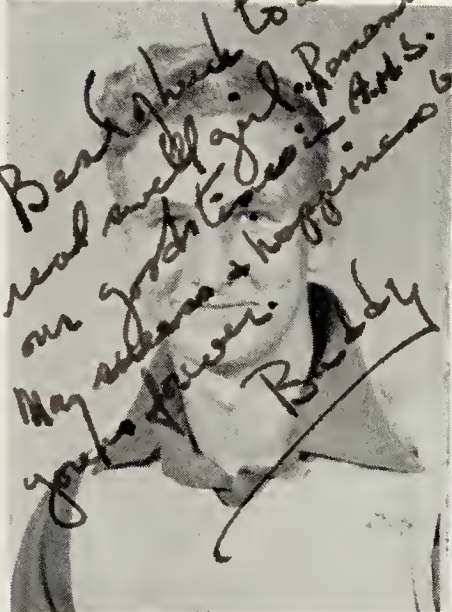 Best o' luck to a
real swell girl. Remem
our good times in A.H.S.
May success & happiness b
yours forever.
Buddy